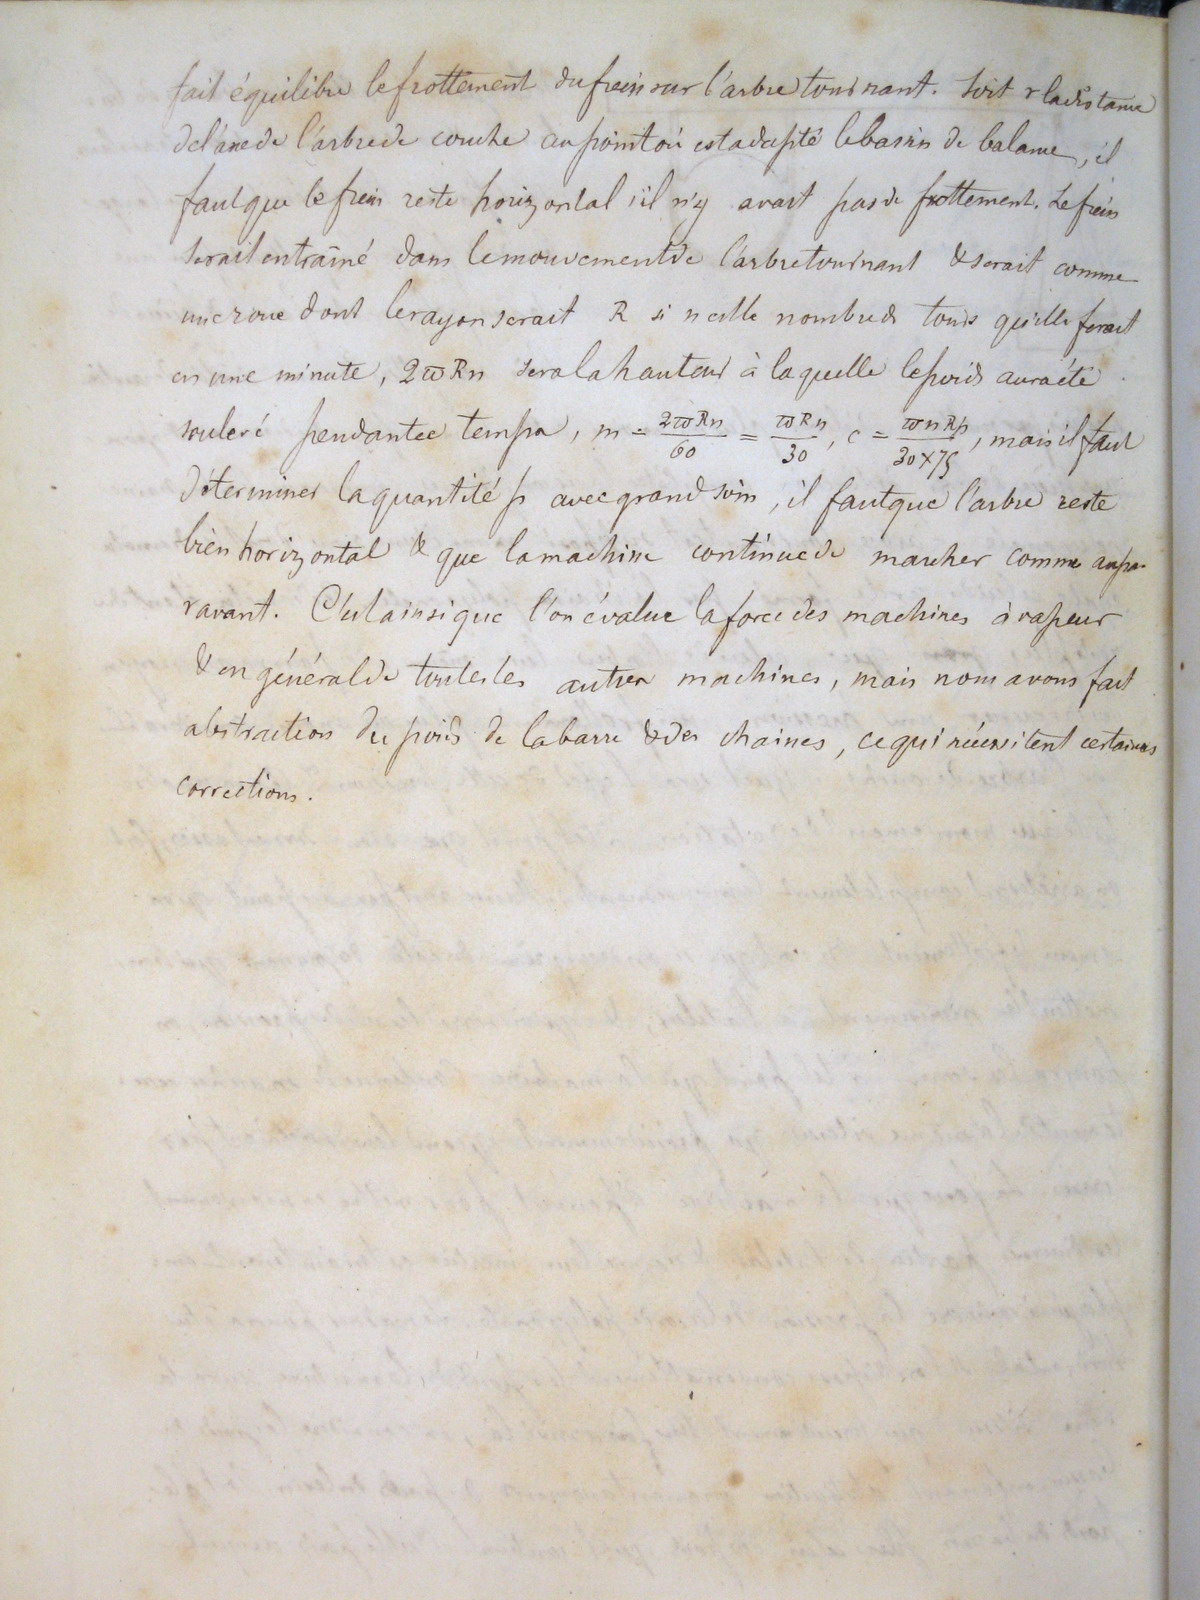 fait équilibre le frottement du frein sur l'arbre tournant. Soit r la distance
de l'axe de l'arbre de couche au point où est adapté le bassin de balance, il
faut que le frein reste horizontal s'il n'y avait pas de frottement. Le frein
serait entraîné dans le mouvement de l'arbre tournant & serait comme
une roue dont le rayon serait R si n est le nombre de tours qu'elle ferait
en une minute, 2ϖRn sera la hauteur à laquelle le poids aura été
soulevé pendant ce temps, m = 2ϖRn/60 = ϖRn/30, c = ϖnRp/30×75, mais il faut
déterminer la quantité p avec grand soin, il faut que l'arbre reste
bien horizontal & que la machine continue de marcher comme aupa-
ravant. C'est ainsi que l'on évalue la force des machines à vapeur
& en général de toutes les autres machines, mais nous avons fait
abstraction du poids de la barre & des chaines, ce qui nécessitent certaines
corrections.